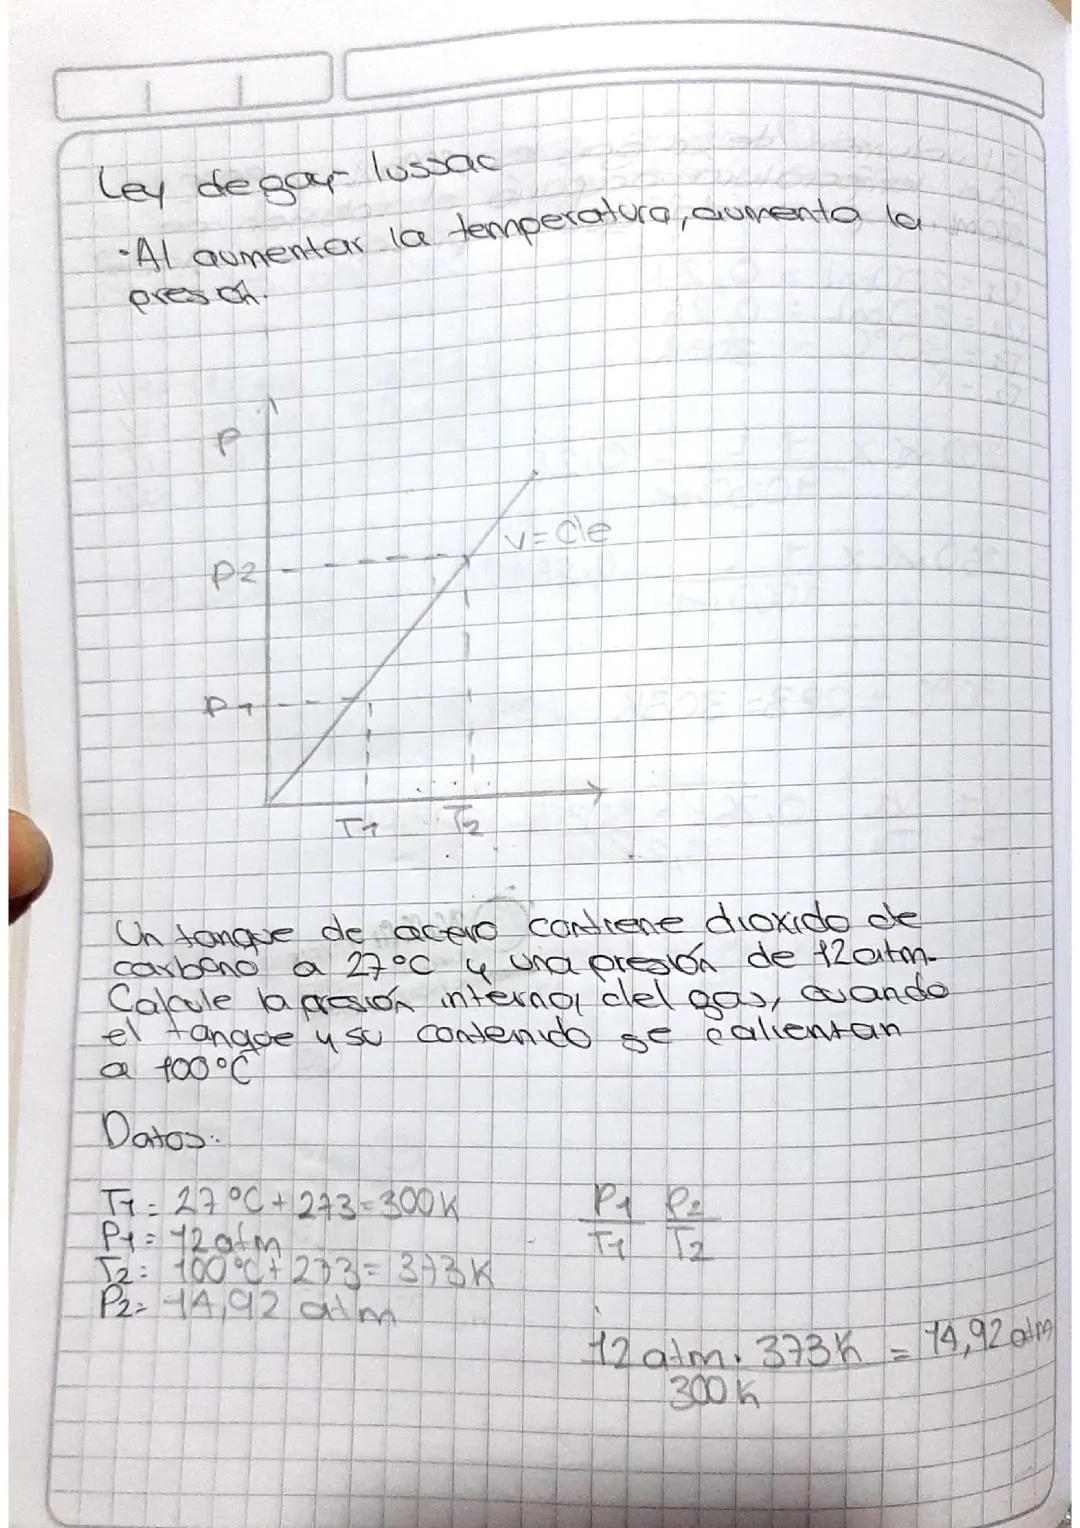 Ley de gay-lussac
·Al aumentar la temperatura, aumenta la
presón.
P
V=Cte
P2
P1
T1 T2
Un tanque de acero contiene dioxido de
carbono a 27°C y una presión de 12atm.
Calcule la presión interna, del gas, cuando
el tanque y su contenido se calientan
a 100°C
Datos:
T1= 27°C+273=300K
P1= 12atm
T2= 100°C+273= 373K
P2= 14,92 atm
P1 P2
T1 T2
12atm. 373K = 14,92atm
300K